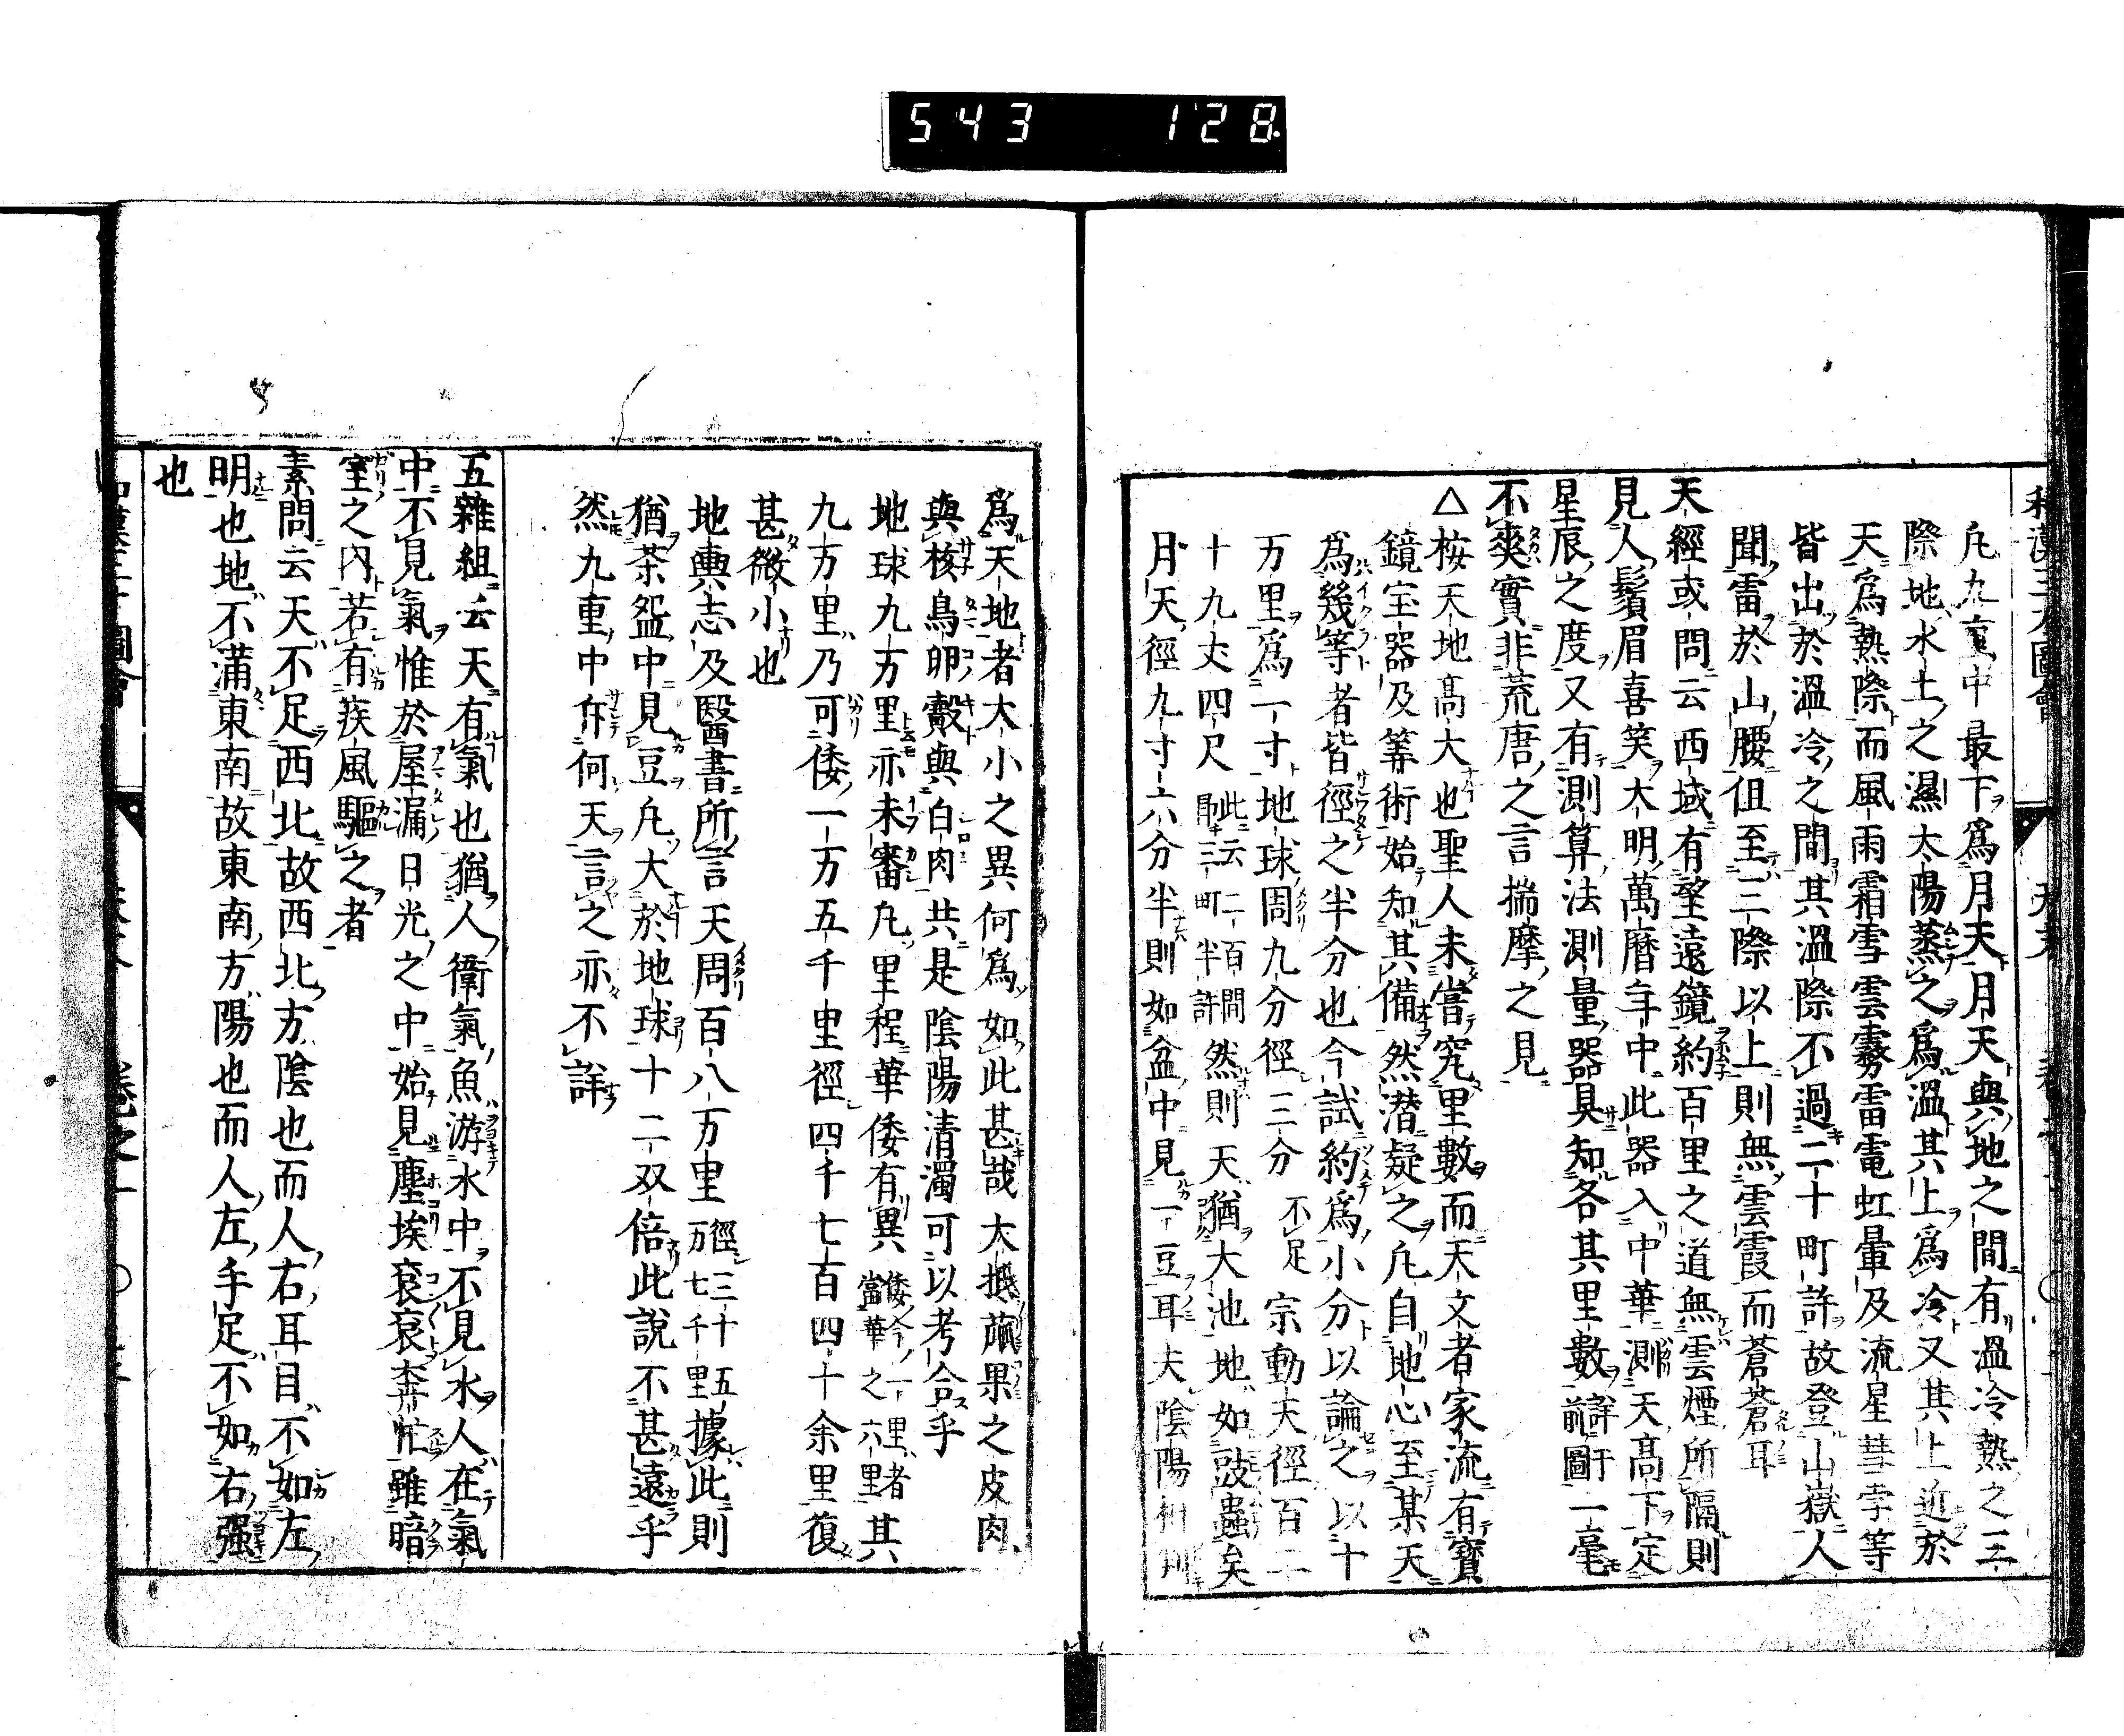 543 128
凢九重中最下爲月天月天與地之間有溫冷熱之三
際地水土之濕太陽蒸之爲溫其上爲冷又其上近於
天爲熱際而風雨霜雪雲霧雷電虹暈及流星彗孛等
皆出於溫冷之間其溫際不過二十町許故登山嶽人
聞雷於山腰但至三際以上則無雲霞而蒼蒼耳
天經或問云西域有望遠鏡約百里之道無雲煙所隔則
見人鬚眉喜笑大明萬曆年中此器入中華測天高下定
星辰之度又有測算法測量器具知各其里數詳于前圖一毫
不爽實非荒唐之言揣摩之見
△桉天地高大也聖人未嘗究里數而天文者家流有寶
鏡宝器及筭術始知其備然潜疑之凢自地心至某天
爲幾等者皆徑之半分也今試約爲小分以論之以十
万里爲一寸地球周九分徑三分不足宗動天徑百二
十九丈四尺此云二百間即三町半許然則天猶大池地如豉蟲矣
月天徑九寸六分半則如盆中見一豆耳夫陰陽
爲天地者大小之異何爲如此甚哉大抵蓏果之皮肉
與核鳥卵㲉與白肉共是陰陽清濁可以考合乎
地球九万里亦未審凢里程華倭有異倭今一里者當華之六里其
九万里乃可倭一万五千里徑四千七百四十余里復
甚微小也
地輿志及醫書所言天周百八万里徑三十五万七千里據此則
猶茶盌中見豆凢大於地球十二双倍此說不甚遠乎
然九重中斥何天言之亦不詳
五雜組云天有氣也猶人衛氣魚游水中不見水人在氣
中不見氣惟於屋漏日光之中始見塵埃袞袞奔忙雖暗
室之內若有疾風驅之者
素問云天不足西北故西北方陰也而人右耳目不如左
明也地不滿東南故東南方陽也而人左手足不如右強
也